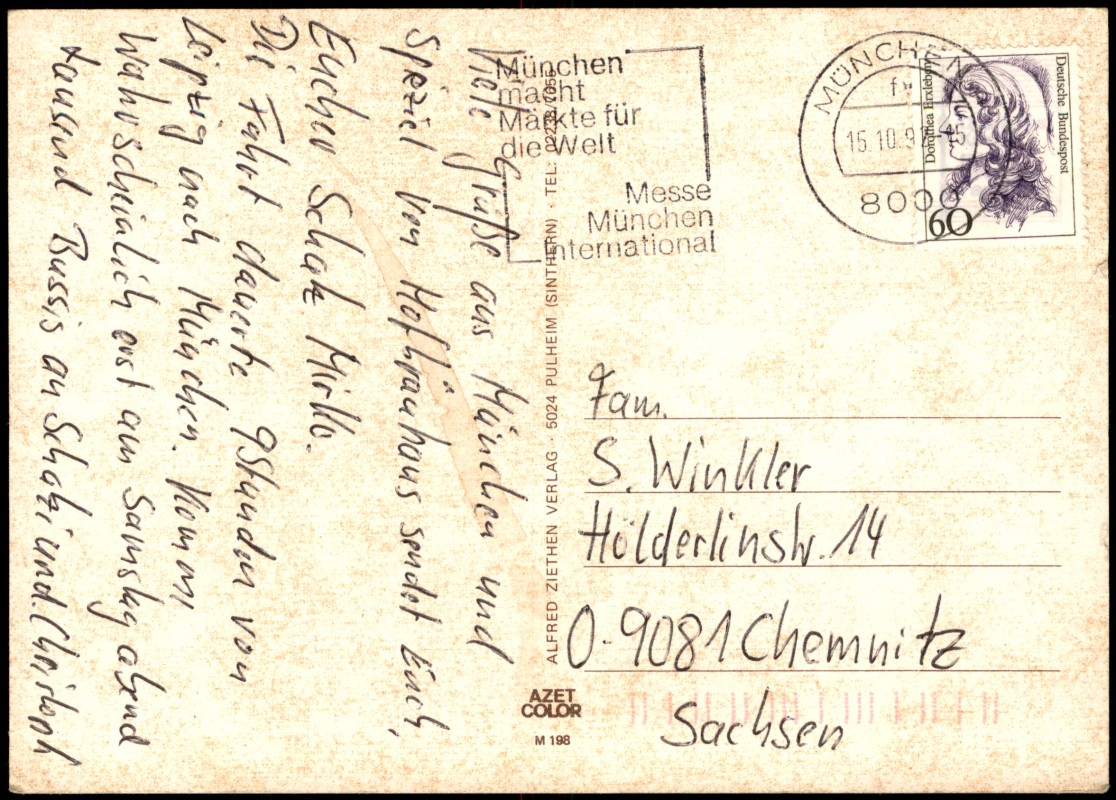 Viele Grüße aus München und
Speziel von Hofbräuhaus sendet Euch,
Eucher Schatz Mirko.
Die Fahrt dauerte 9 Stunden von
Leipzig nach München. Komm
Wahrscheinlich erst am Samstag abend
tausend Bussis an Schatzi und. Christoph
München
macht
Märkte für
die Welt
Messe
München
International
MÜNCHEN
15.10.9
8000
Deutsche Bundespost
Dorothea Erxleben
60
ALFRED ZIETHEN VERLAG · 5024 PULHEIM (SINTHERN) · TEL:
Fam.
S. Winkler
Hölderlinstr. 14
O-9081 Chemnitz
Sachsen
AZET
COLOR
M 198